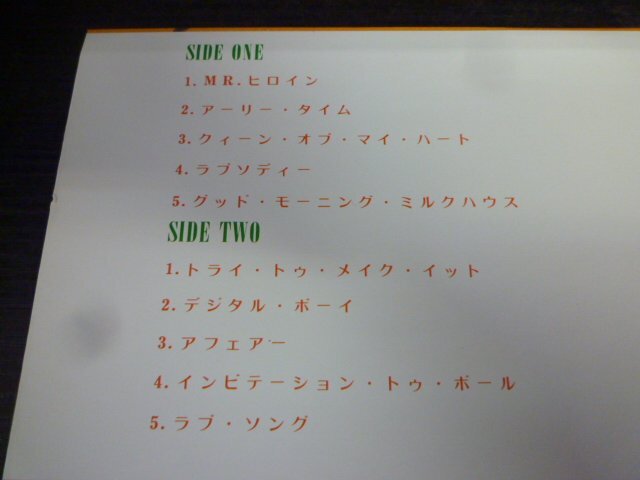 SIDE ONE
1. MR.ヒロイン
2. アーリー・タイム
3. クィーン・オブ・マイ・ハート
4. ラブソディー
5. グッド・モーニング・ミルクハウス
SIDE TWO
1. トライ・トゥ・メイク・イット
2. デジタル・ボーイ
3. アフェアー
4. インビテーション・トゥ・ボール
5. ラブ・ソング